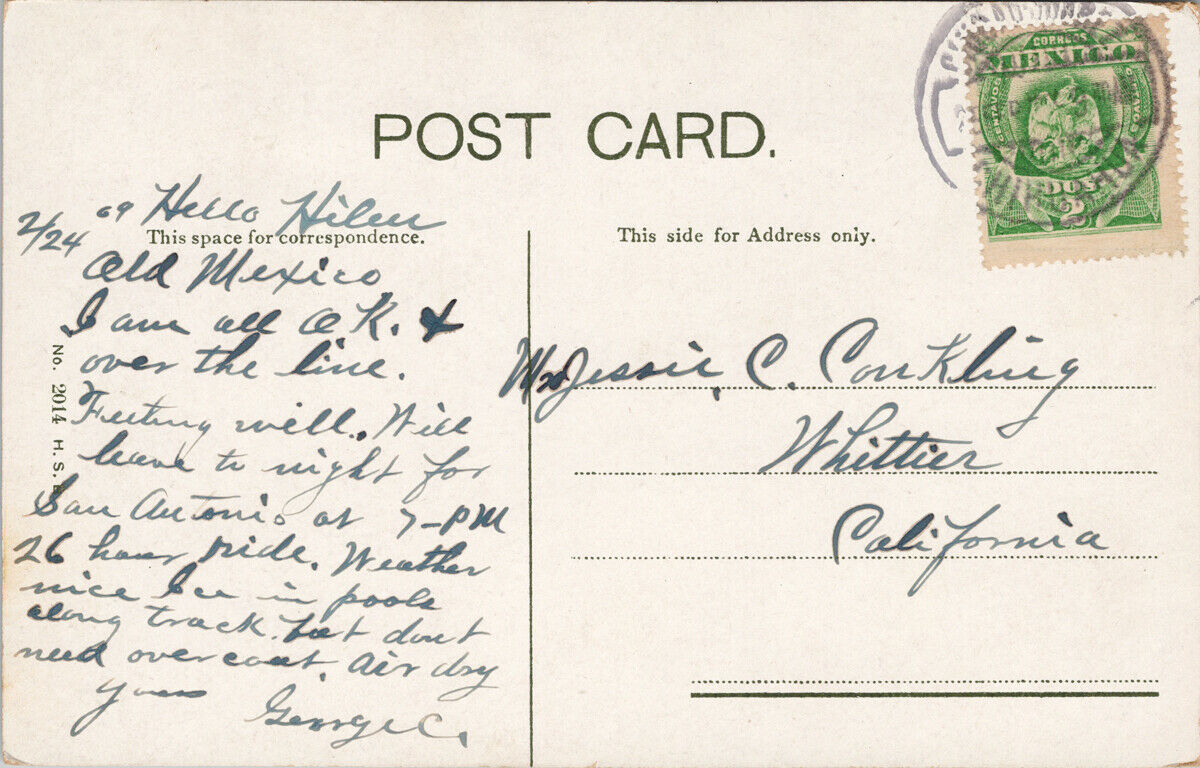 POST CARD.
CORREOS
MEXICO
CENTAVOS
DOS
2
2/24 09 Hello Hilen
This space for correspondence.
Old Mexico
I am all O K. &
over the line.
Feeling well. Will
leave to night for
San Antonio at 7-PM
26 hour ride. Weather
nice Ice in pools
along track but dont
need over coat. Air dry
yours
George C.
No. 2014 H. S.
This side for Address only.
Jessie, C. Conkling
Whittier
California